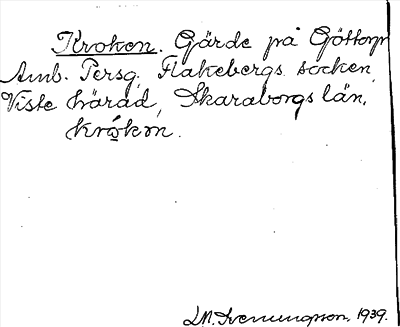 Kroken. Gärde på Göttorp
Amb. Persg. Flakebergs socken,
Viste härad, Skaraborgs län.
krɷ́kɷn.
1939.